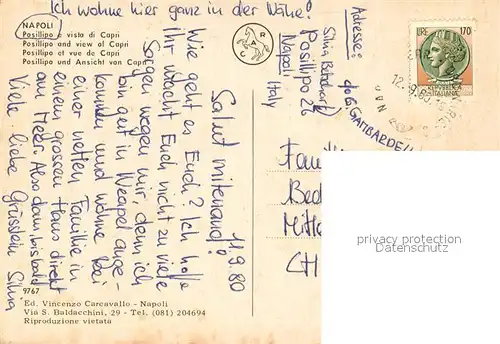 Ich wohne hier ganz in der Nähe!
NAPOLI
Posillipo e vista di Capri
Posillipo and view of Capri
Posillipo et vue de Capri
Posillipo und Ansicht von Capri
CAR
11.9.80
Salut mitenand!
Wie geht es Euch? Ich hoffe
Ihr macht Euch nicht zu viele
Sorgen wegen mir, denn ich
bin gut in Neapel ange-
kommen und wohne bei
einer netten Familie in
einem grossen Haus direkt
am Meer. Also dann bis bald
Viele liebe Grüsslein Silvia
Adresse:
Silvia
c/o G. GAMBARDELL
Posillipo 26
Napoli
Italy
LIRE 170
REPUBBLICA
ITALIANA
12.9.80
Fam
Bec
Mitte
CH
privacy protection
Datenschutz
9767
Ed. Vincenzo Carcavallo - Napoli
Via S. Baldacchini, 29 - Tel. (081) 204694
Riproduzione vietata